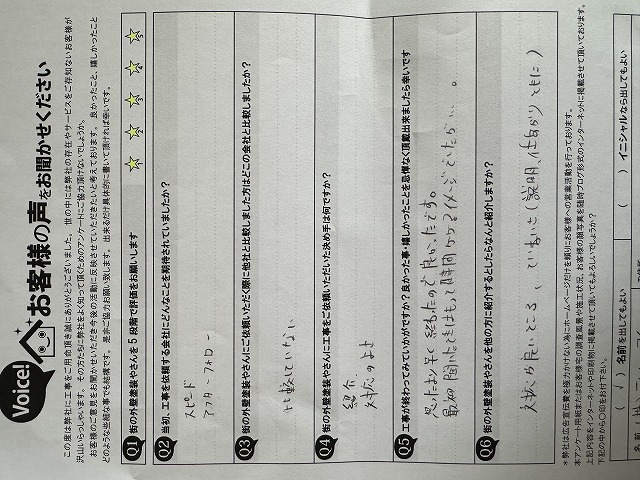 Voice!
お客様の声をお聞かせください
この度は弊社に工事をご用命頂き誠にありがとうございました。世の中には弊社の存在やサービスをご存知ないお客様が
沢山いらっしゃいます。その方たちに弊社をよく知って頂くためのアンケートにご協力頂けないでしょうか。
お客様のご意見をお聞かせいただき今後の活動に反映させていただきたいと考えております。良かったこと、嬉しかったこと
どのような些細な事でも結構です。是非ご協力お願い致します。出来るだけ具体的に書いて頂ければ幸いです。
Q1 街の外壁塗装やさんを5段階で評価をお願いします
1 2 3 4 5
Q2 当初、工事を依頼する会社にどんなことを期待されていましたか?
スピード
アフターフォロー
Q3 街の外壁塗装やさんにご依頼いただく際に他社と比較しました方はどこの会社と比較しましたか?
比較していない
Q4 街の外壁塗装やさんに工事をご依頼いただいた決め手は何ですか?
紹介
対応のよさ
Q5 工事が終わってみていかがですか?良かった事・嬉しかったことを忌憚なく頂戴出来ましたら幸いです
思ったより早く終わったので良かったです。
最初聞いた時はもって時間かかるイメージでしたが…。
Q6 街の外壁塗装やさんを他の方に紹介するとしたらなんと紹介しますか?
対応が良いところ、ていねいさ(説明、仕上がりともに)
*弊社は広告宣伝費を極力かけない為にホームページだけを頼りにお客様への営業活動を行っております。
本アンケート用紙またはお客様宅の調査風景や施工状況、お客様の顔写真を随時ブログ形式のインターネットに掲載させて頂いております。
上記内容をインターネットや印刷物に掲載させて頂いてもよろしいでしょうか?
下記の中から○印をお付け下さい。
(√)名前を出してもよい
( )イニシャルなら出してもよい